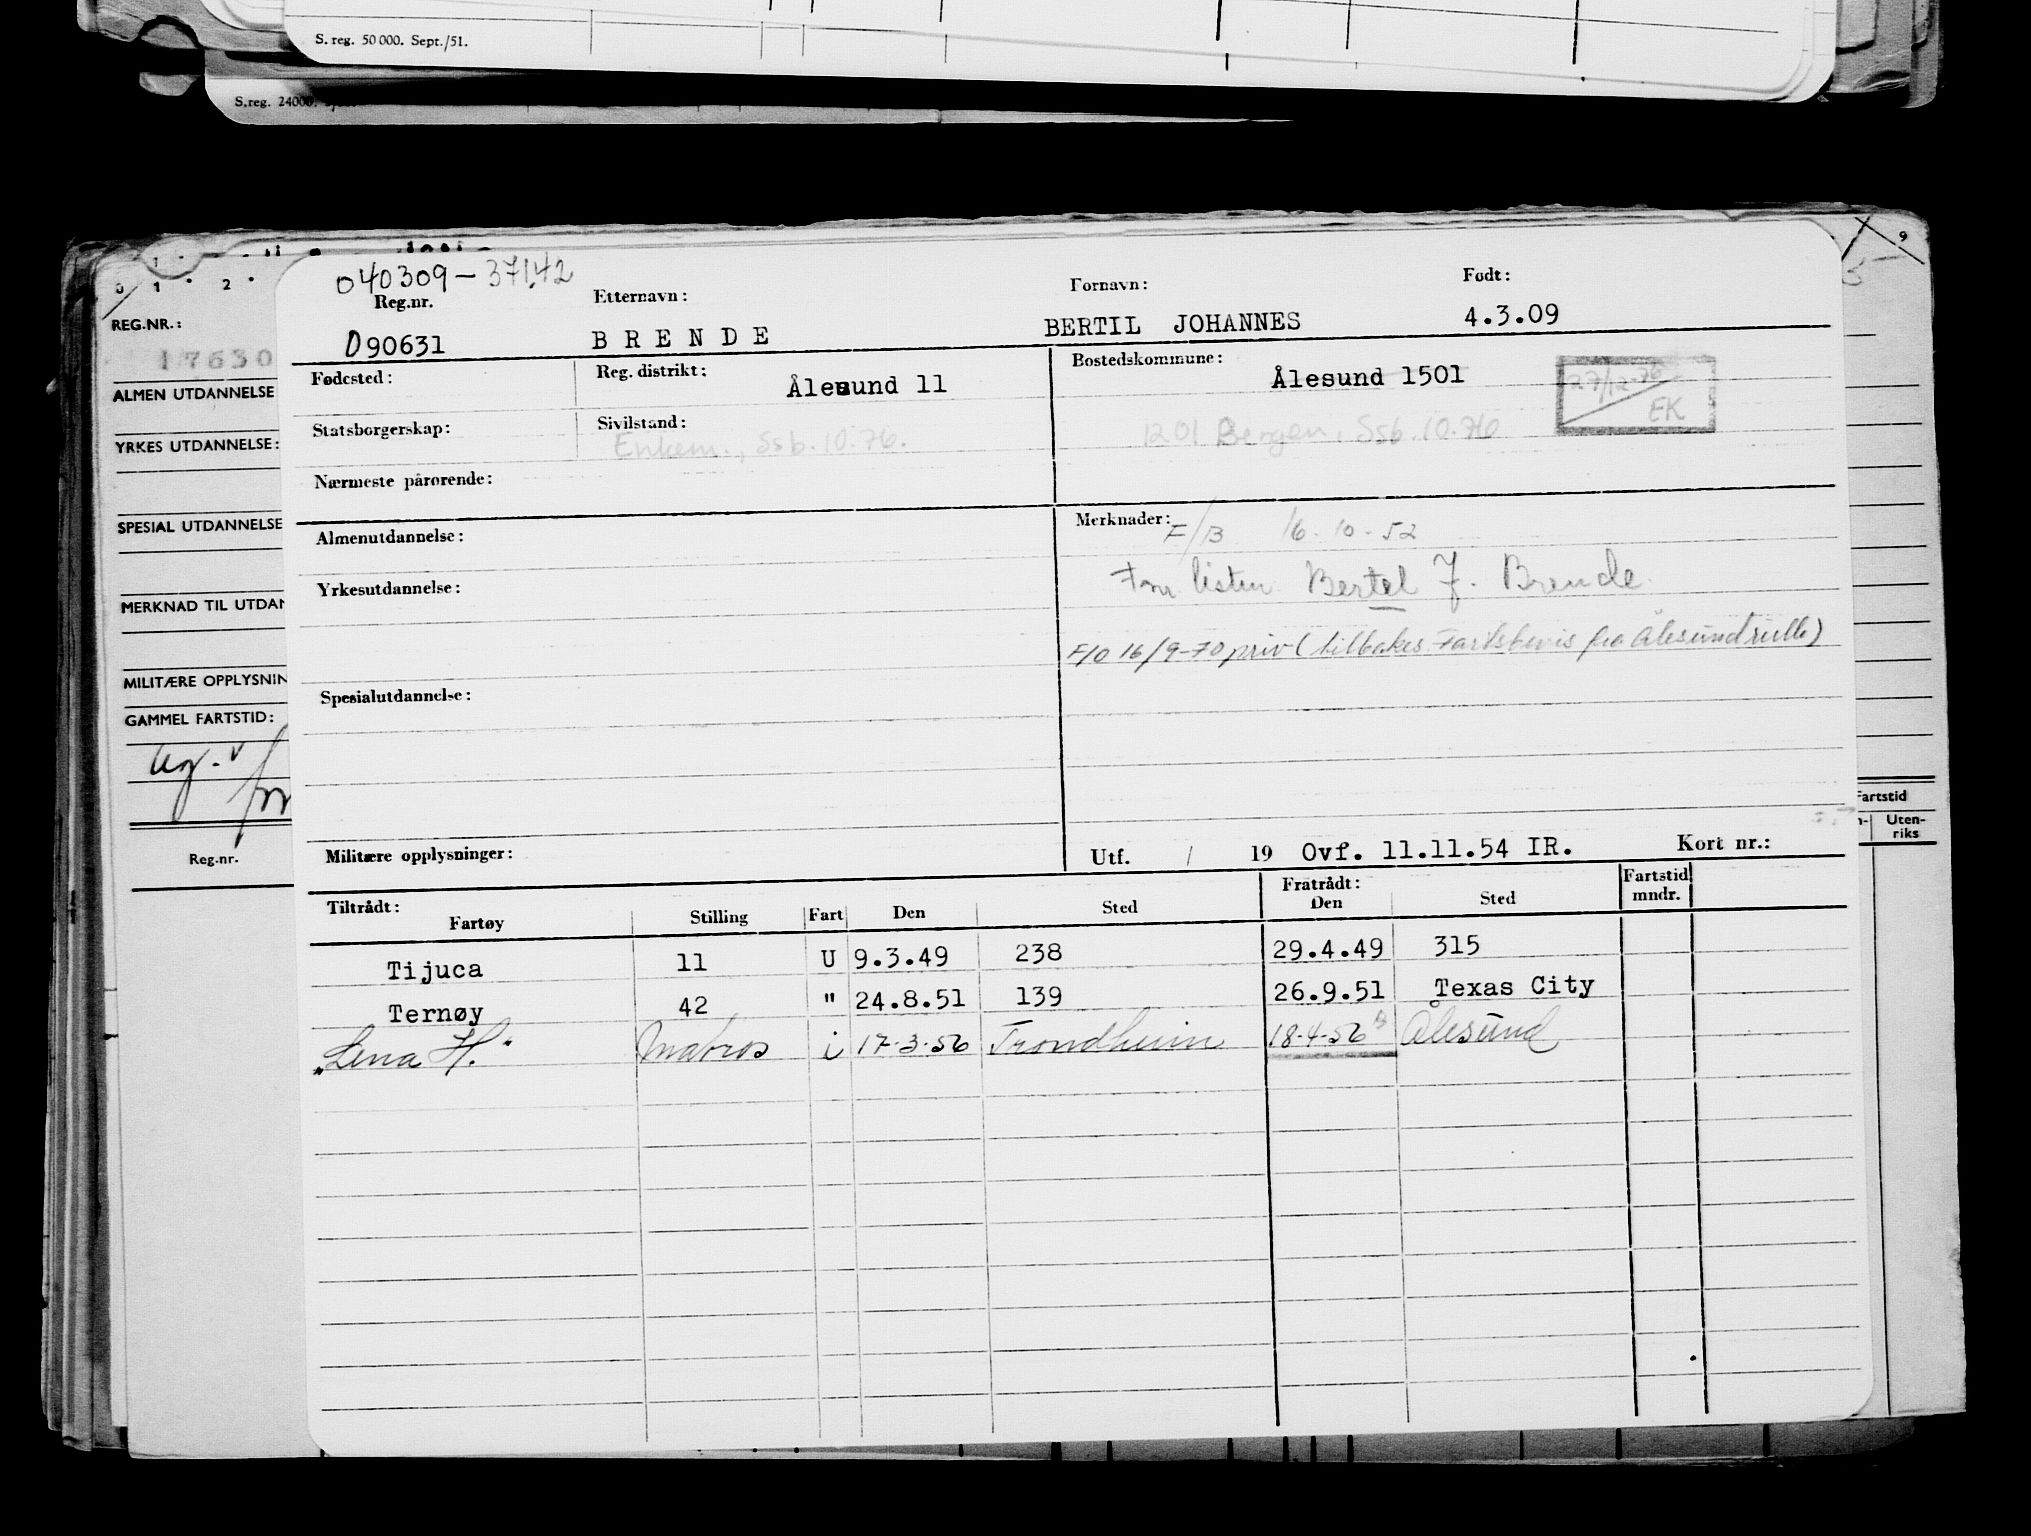 S. reg. 50 000. Sept./51.
S.reg. 24000.
0 1 2 9
040309-37142
Reg.nr. Etternavn: Fornavn: Født:
D90631 B R E N D E BERTIL JOHANNES 4.3.09
REG.NR.:
17630
Fødested: Reg. distrikt: Ålesund 11 Bostedskommune: Ålesund 1501
27/12-76
EK
ALMEN UTDANNELSE
Statsborgerskap: Sivilstand:
Enkem., Ssb. 10.76. 1201 Bergen, Ssb. 10.76
YRKES UTDANNELSE:
Nærmeste pårørende:
SPESIAL UTDANNELSE
Almenutdannelse: Merknader: F/B 16-10-52
Yrkesutdannelse: listen Bertel J. Brende
MERKNAD TIL UTDAN
F/O 16/9-70 priv (tilbakes. Fartsbevis fra Ålesund rulle)
MILITÆRE OPPLYSNIN
Spesialutdannelse:
GAMMEL FARTSTID:
Militære opplysninger: Utf. / 19 Ovf. 11.11.54 IR. Kort nr.:
Fartstid
Uten-
riks
Reg.nr.
Tiltrådt: Fratrådt: Fartstid
Fartøy Stilling Fart Den Sted Den Sted mndr.
Tijuca 11 U 9.3.49 238 29.4.49 315
Ternøy 42 " 24.8.51 139 26.9.51 Texas City
"Lena H." Matros i 17-3-56 Trondheim 18-4-56 B Ålesund